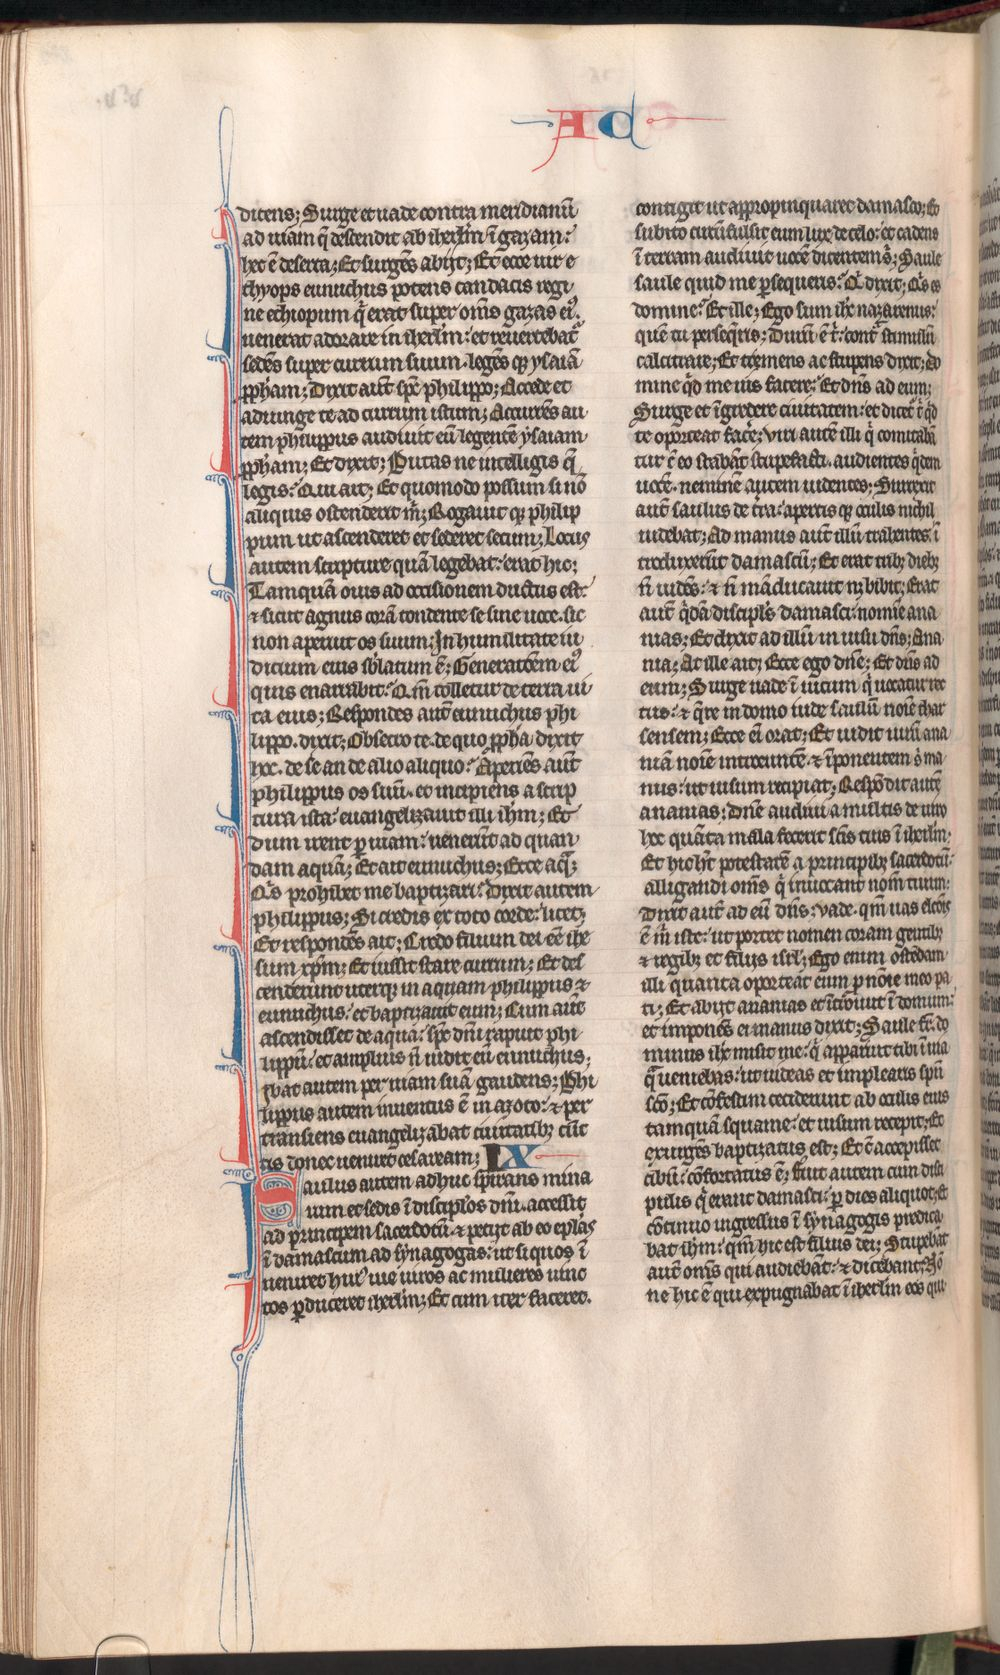 AC
dicens; Surge et uade contra meridianū
ad uiam q̄ descendit ab iherlm̄ ī gazam:
hec ē deserta; Et surgēs abijt; Et ecce uir e
thyops eunuchus potens candacis regi
ne ethiopum q̄ erat super om̄s gazas eiꝰ.
uenerat adorare in iherlm̄: et reuertebat᷑
sedēs super currum suum. legēs qꝫ ysaiā
ꝓpham; Dixit aūt spc̄ philippo; Accede et
adiunge te ad currum istum; Accurrēs au
tem philippus audiuit eū legentē ysaiam
ꝓpham; Et dixit; Putas ne intelligis q̄
legis: Qui ait; Et quomodo possum si nō
aliquis ostenderit m̄; Rogauit qꝫ philip
pum ut ascenderet et sederet secum; Locus
autem scripture quā legebat: erat hic;
Tamquā ouis ad occisionem ductus est:
⁊ sicut agnus corā tondente se sine uoce. sic
non aperuit os suum; In humilitate iu
dicium eius sb̄latum ē; Generatōem eiꝰ
quis enarrabit: Qm̄ tolletur de terra ui
ta eius; Respondēs aūt eunuchus phi
lippo. dixit; Obsecro te. de quo ꝓpha dixit
hoc. de se an de alio aliquo: Aperiēs aūt
philippus os suū. et incipiens a scrip
tura ista: euangelizauit illi ihm̄; Et
dum irent ꝑ uiam: uenerūt ad quan
dam aquā; Et ait eunuchus; Ecce aq̄;
Qis prohibet me baptizari: Dixit autem
philippus; Si credis ex toto corde: licet;
Et respondēs ait; Credo filium dei eē ihe
sum xp̄m; Et iussit stare currum; Et des
cenderunt uterqꝫ in aquam philippus ⁊
eunuchus: et baptizauit eum; Cum aūt
ascendisset de aqua: spc̄ dn̄i rapuit phi
lippū: et amplius n̄ uidit eū eunuchus;
Ibat autem per uiam suā gaudens; Phi
lippus autem inuentus ē in azoto: ⁊ per
transiens euangelizābat ciuitatibꝫ cūc
tis donec ueniret cesaream; IX
Saulus autem adhuc spirans mina
rum et cedis ī discip̄los dn̄i. accessit
ad principem sacerdotū. ⁊ petijt ab eo epl̄as
ī damascum ad synagogas: ut si quos ī
ueniret huiꝰ uie uiros ac mulieres uinc
tos ꝑduceret iherlm̄; Et cum iter faceret.
contigit ut appropinquaret damasco; Et
subito circūfulsit eum lux de celo: et cadens
ī terram audiuit uocē dicentem s̄; Saule
saule quid me ꝑsequeris: Q̄ dixit; Qis es
domine: Et ille; Ego sum ihc̄ nazarenus:
quē tu perseq̄ris; Durū ē t̄: cont̄ stimulū
calcitrare; Et tremens ac stupens dixit; do
mine q̄d me uis facere: Et dn̄s ad eum;
Surge et ī gredere ciuitatem: et dicet᷑ t̄ q̄d
te oporteat fac̄e; Viri autē illi q̄ comitabā
tur c̄ eo stabāt stupefacti. audientes q̄dem
uocē. neminē autem uidentes; Surrexit
aūt saulus de t̄ra: apertis qꝫ oculis nichil
uidebat; Ad manus aūt illū trahentes: ī
troduxerūt damascū; Et erat tribꝫ diebꝫ
n̄ uidēs: ⁊ n̄ māducauit nꝫ bibit; Erat
aūt q̄dā discipl̄s damasci: nomīe ana
nias; Et dixit ad illū in uisu dn̄s; Ana
nia; At ille ait; Ecce ego dn̄e; Et dn̄s ad
eum; Surge uade ī uicum q̄ uocatur rec
tus: ⁊ q̄re in domo iude saulū noīe thar
sensem; Ecce eī orat; Et uidit uirū ana
niā noīe introeuntē. ⁊ īponentem s̄ ma
nus: ut uisum recipiat; Respōdit autē
ananias; Dn̄e audiui a multis de uiro
hoc quāta mala fecerit sc̄is tuis ī iherlm̄;
Et hic hꝫt potestatē a principibꝫ sacerdotū:
alligandi om̄s q̄ inuocant nom̄ tuum:
Dixit aūt ad eū dn̄s: vade. qm̄ uas elcōis
ē m̄ iste: ut portet nomen coram gentibꝫ
⁊ regibꝫ et filijs isrl̄; Ego enim ostēdam
illi quanta oporteat eum ꝑ nōīe meo pa
ti; Et abijt ananias et ītroiuit ī domum:
et imponēs ei manus dixit; Saule fr̄. do
minus ihc̄ misit me: q̄ apparuit tibi ī uia
q̄ ueniebas: ut uideas et implearis spū
sc̄o; Et cōfestim ceciderunt ab oculis eius
tamquā squame: et uisum recepit; Et
exurgēs baptizatus est; Et c̄ accepisset
cibū: cōfortatus ē; fuit autem cum disci
pulis q̄ erant damasci: ꝑ dies aliquot; Et
cōtinuo ingressus ī synagogis predica
bat ihm̄: qm̄ hic est filius dei; Stupebāt
aūt om̄s qui audiebāt: ⁊ dicebant; Nō
ne hic ē qui expugnabat ī iherlm̄ eos qui